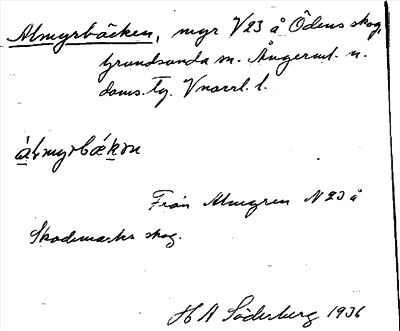 Almyrbäcken, myr V23 å Ödens skog,
Grundsunda sn. Ångerml. n.
doms. tg. Vnorrl. l.
álmyrbǽkɔn
Från Almyren N23 å
Skademarks skog.
H A Söderberg 1936